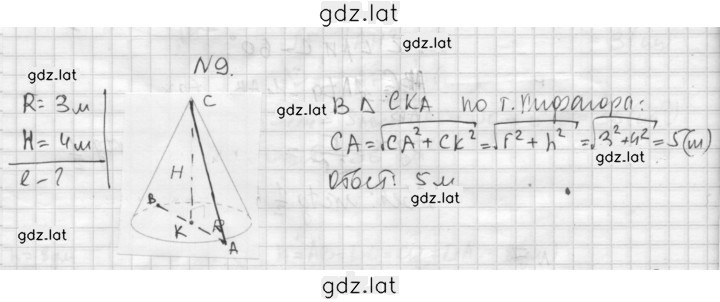 gdz.lat
gdz.lat
N9.
gdz.lat
R = 3 м
H = 4 м
l - ?
gdz.lat
C
H
B
K
R
A
gdz.lat
В Δ CKA по т. Пифагора:
CA = √(CA² + CK²) = √(r² + h²) = √(3² + 4²) = 5 (м)
gdz.lat
Ответ: 5 м
gdz.lat
gdz.lat